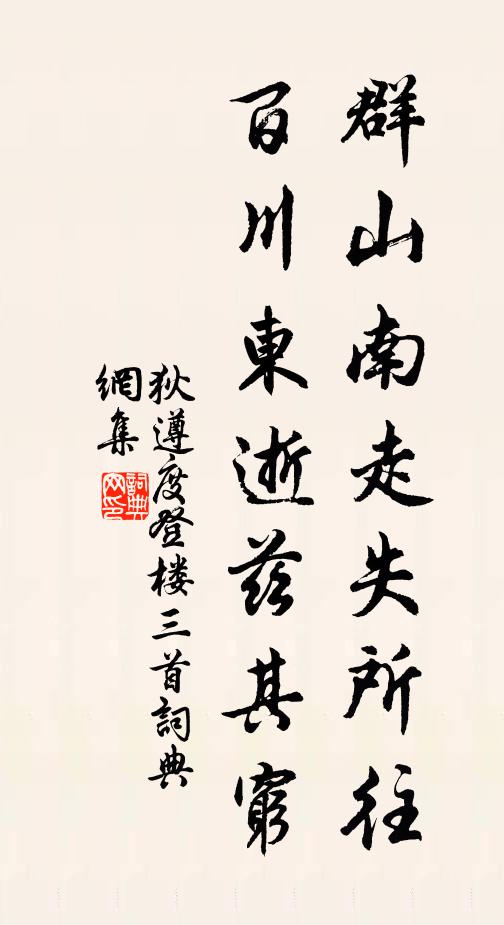 群山南走失所往
百川東逝兹其窮
狄遵度登楼三首詞典
網集
詞典
网印